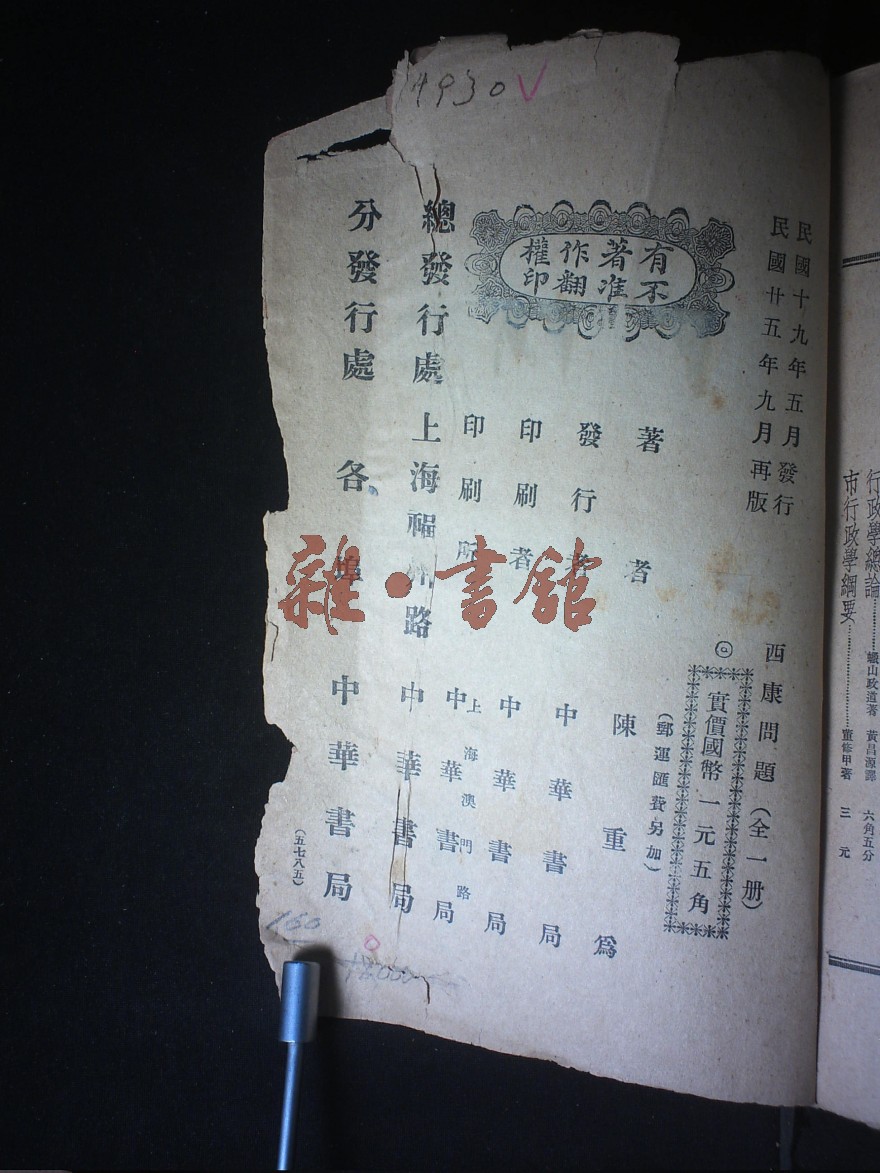 行政學總論……………蠟山政道著 黃昌源譯 六角五分
市行政學綱要……………董修甲著 三元
民國十九年五月發行
民國廿五年九月再版
西康問題(全一册)
◎實價國幣一元五角
(郵運匯費另加)
有著作權
不准翻印
著者 陳重為
發行者 中華書局
印刷者 中華書局
印刷所 上海澳門路 中華書局
總發行處 上海福州路 中華書局
分發行處 各埠 中華書局
(五七八五)
4930 V
160
雜·書館